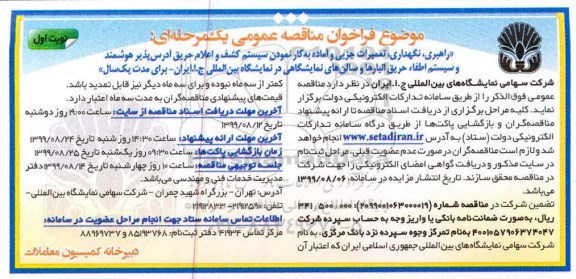 موضوع فراخوان مناقصه عمومی یک‌مرحله‌ای:
نوبت اول
«راهبری، نگهداری، تعمیرات جزیی و آماده به‌کار نمودن سیستم کشف و اعلام حریق آدرس‌پذیر هوشمند
و سیستم اطفاء حریق انبارها و سالن‌های نمایشگاهی در نمایشگاه بین‌المللی ج.ا.ایران - برای مدت یک‌سال»
شرکت سهامی نمایشگاه‌های بین‌المللی ج.ا.ایران در نظر دارد مناقصه
عمومی فوق‌الذکر را از طریق سامانه تدارکات الکترونیکی دولت برگزار
نماید. کلیه مراحل برگزاری از دریافت اسناد مناقصه تا ارائه پیشنهاد
مناقصه‌گران و بازگشایی پاکت‌ها از طریق درگاه سامانه تدارکات
الکترونیکی دولت (ستاد) به آدرس www.setadiran.ir انجام خواهد
شد و لازم است مناقصه‌گران در صورت عدم عضویت قبلی، مراحل ثبت‌نام
در سایت مذکور و دریافت گواهی امضای الکترونیکی را جهت شرکت
در مناقصه محقق سازند. تاریخ انتشار مزایده در سامانه، ۱۳۹۹/۰۸/۰۶
می‌باشد.
تضمین شرکت در مناقصه شماره (۲۰۹۹۰۰۱۰۶۳۰۰۰۰۱۹) ۳۴۱/۵۰۰/۰۰۰
ریال، به‌صورت ضمانت‌نامه بانکی یا واریز وجه به حساب سپرده شرکت
۴۰۰۱۰۵۷۹۰۶۳۷۴۰۴۷ به‌نام تمرکز وجوه سپرده نزد بانک مرکزی، به نام
شرکت سهامی نمایشگاه‌های بین‌المللی جمهوری اسلامی ایران که اعتبار آن
کمتر از سه ماه نبوده و برای سه ماه دیگر نیز قابل تمدید باشد.
قیمت‌های پیشنهادی مناقصه‌گران به مدت سه ماه اعتبار دارد.
آخرین مهلت دریافت اسناد مناقصه از سایت: ساعت ۱۹:۰۰ روز دوشنبه
تاریخ ۱۳۹۹/۰۸/۱۲
آخرین مهلت ارائه پیشنهاد: ساعت ۱۴:۳۰ روز شنبه تاریخ ۱۳۹۹/۰۸/۲۴
زمان بازگشایی پاکت‌ها: ساعت ۹:۳۰ روز یکشنبه تاریخ ۱۳۹۹/۰۸/۲۵
جلسه توجیهی مناقصه: ساعت ۱۰ روز چهارشنبه تاریخ ۱۳۹۹/۰۸/۱۴ دفتر
مدیریت خدمات فنی و مهندسی می‌باشد.
آدرس: تهران - بزرگراه شهید چمران - شرکت سهامی نمایشگاه بین‌المللی-
تلفن: ۲۱۹۱۲۵۹۰-۲۱۹۱۲۸۳۳
اطلاعات تماس سامانه ستاد جهت انجام مراحل عضویت در سامانه:
مرکز تماس ۴۱۹۳۴ دفتر ثبت‌نام: ۸۵۱۹۳۷۶۸ و ۸۸۹۶۹۷۳۷
دبیرخانه کمیسیون معاملات